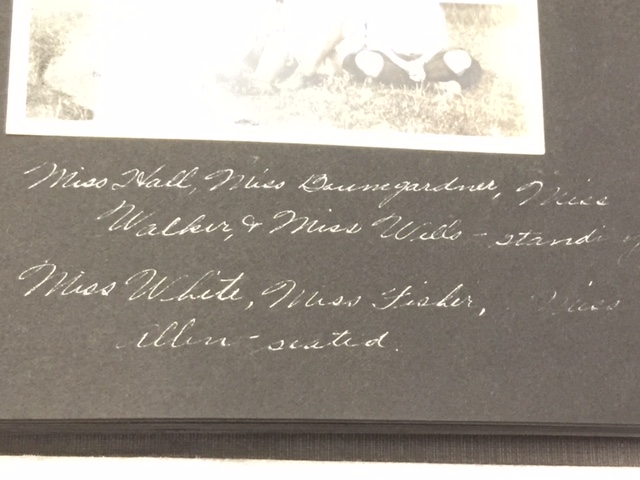 Miss Hall, Miss Baumgardner, Miss
Walker, & Miss Wills - standing
Miss White, Miss Fisher, Miss
Allen - seated.